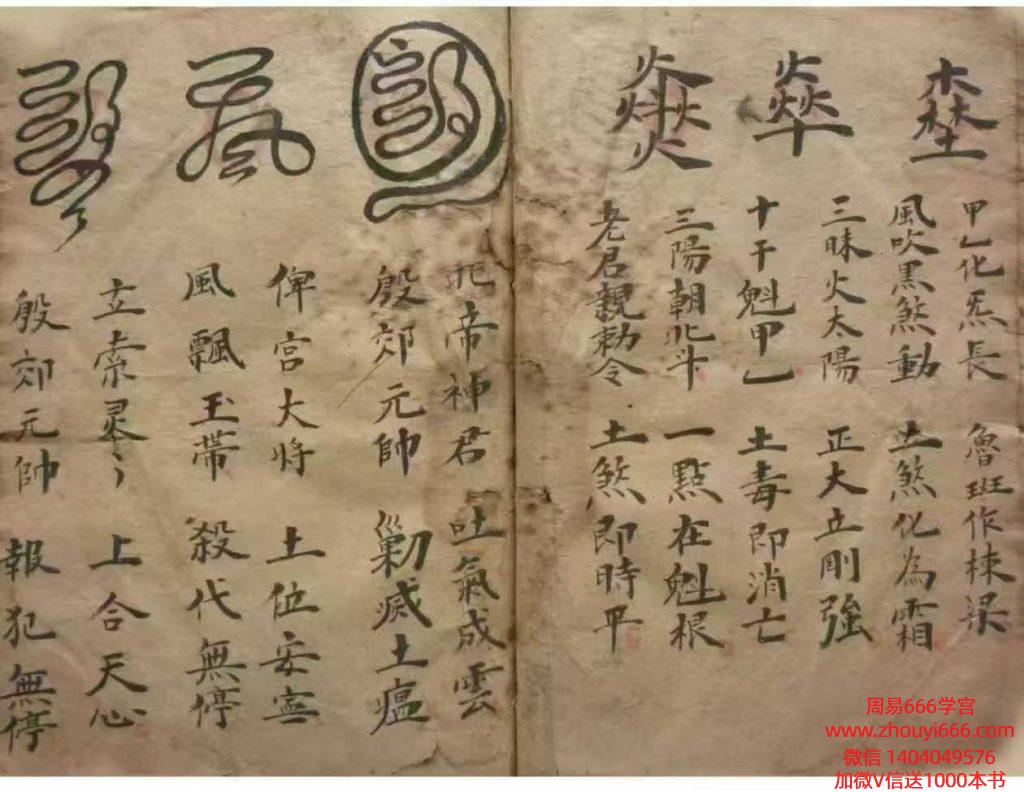 甲乙化炁長 魯班作棟梁
風吹黑煞動 土煞化為霜
三昧火太陽 正大立剛強
十干魁甲乙 土毒即消亡
三陽朝北斗 一點在魁根
老君親敕令 土煞即時平
北帝神君 吐氣成雲
殷郊元帥 剿滅土瘟
俾宮大將 土位安寧
風飄玉帶 殺代無停
立索灵〻 上合天心
殷郊元帥 報犯無停
周易666学宫
www.zhouyi666.com
微信 1404049576
加微V信送1000本书